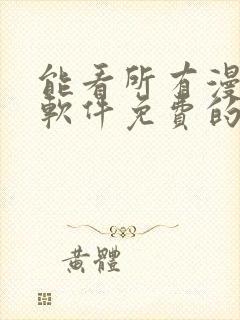 能看所有漫
軟件免費的
黃體